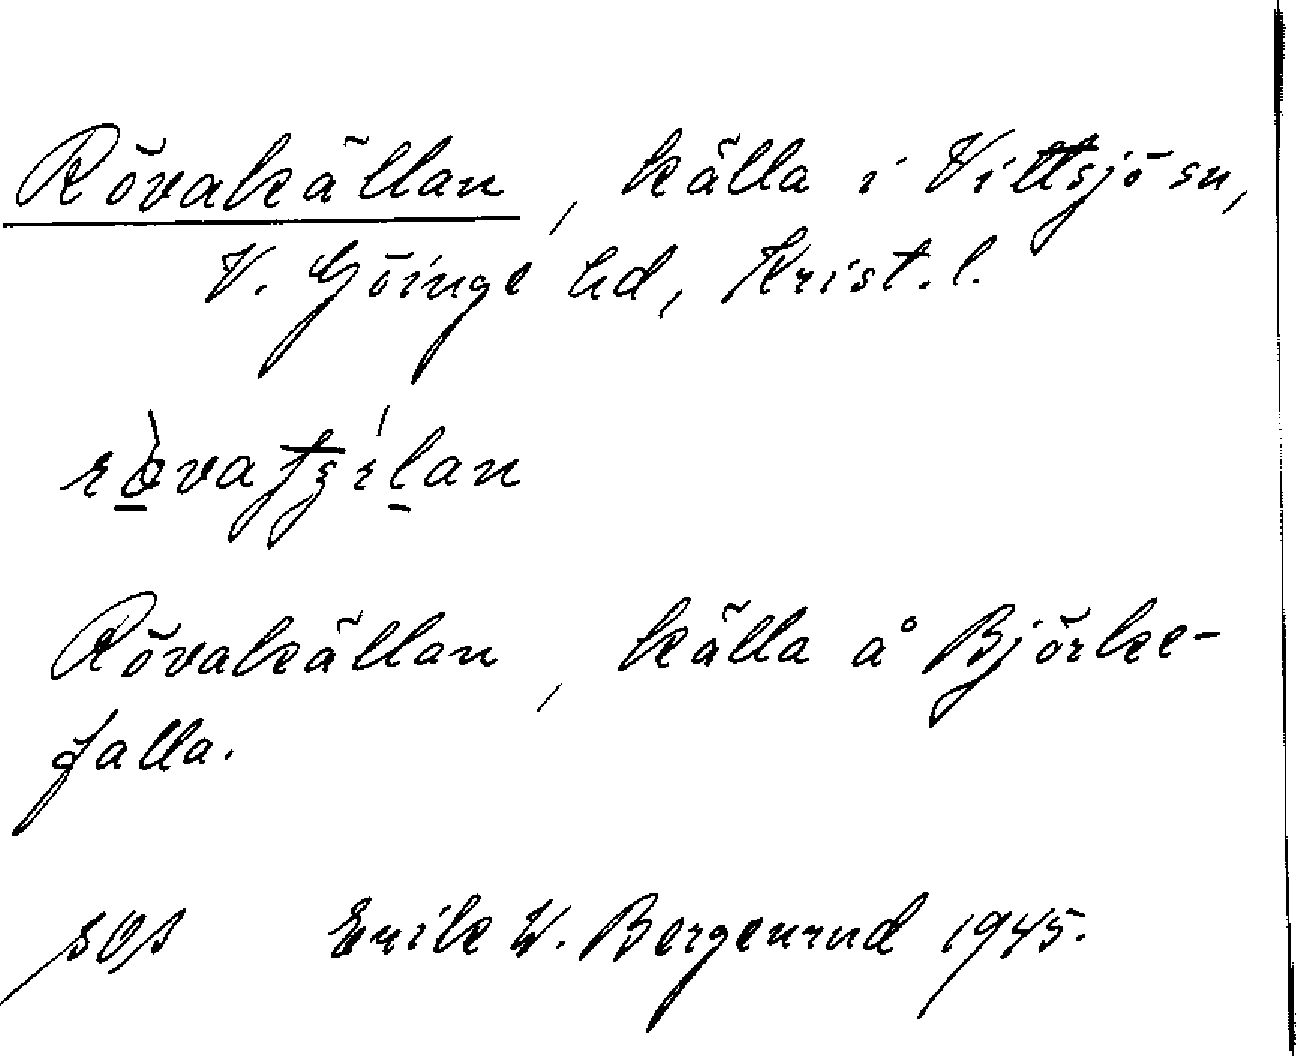 Rövakällan, källa i Vittsjö sn,
V. Göinge hd, Krist. l.
Rövakällan, källa å Björke-
falla.
Erik W. Bergenrud 1945.